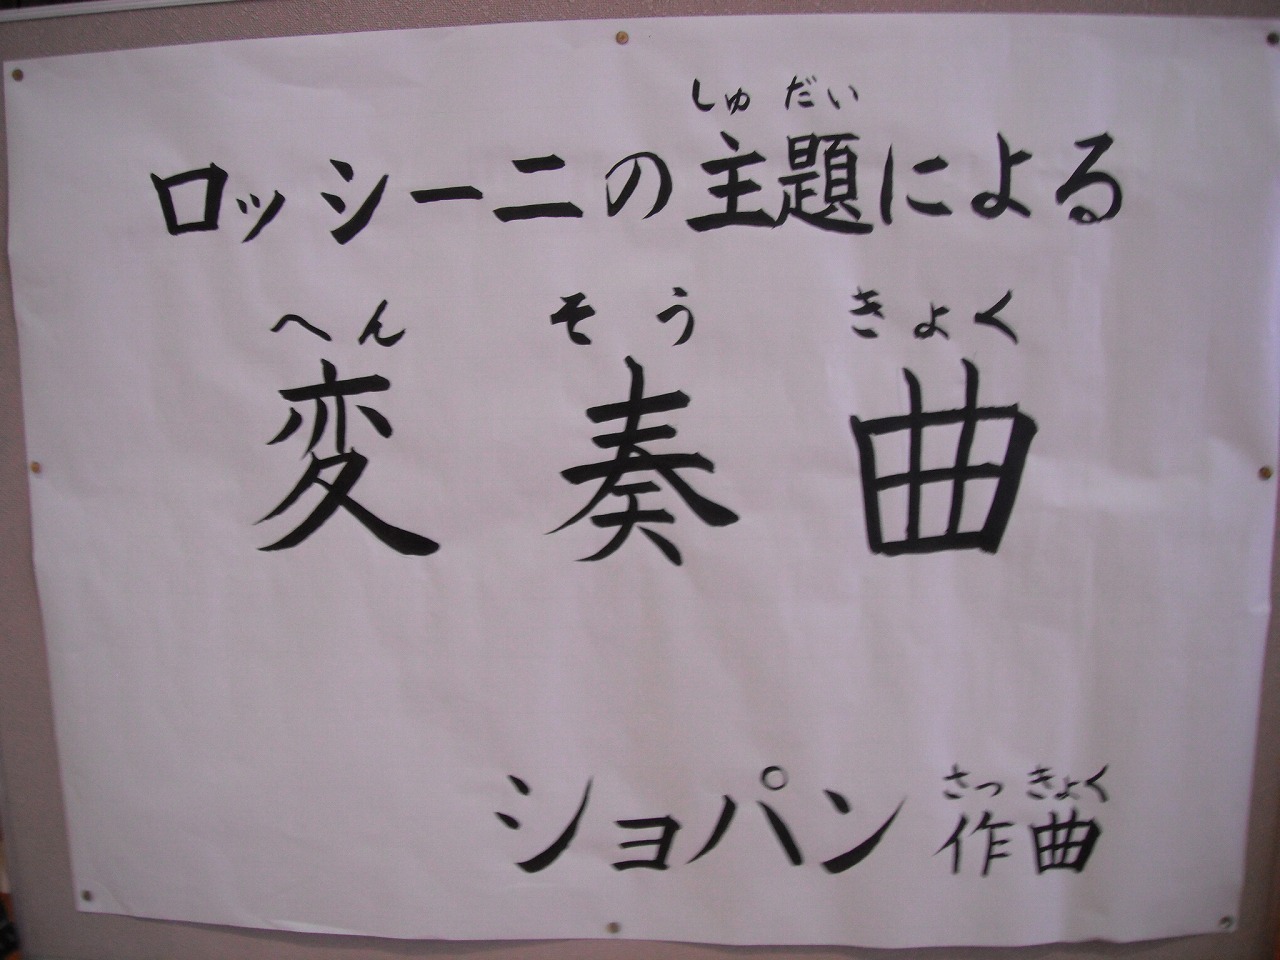 しゅ だい
ロッシーニの主題による
へん そう きょく
変奏曲
さっ きょく
ショパン 作曲